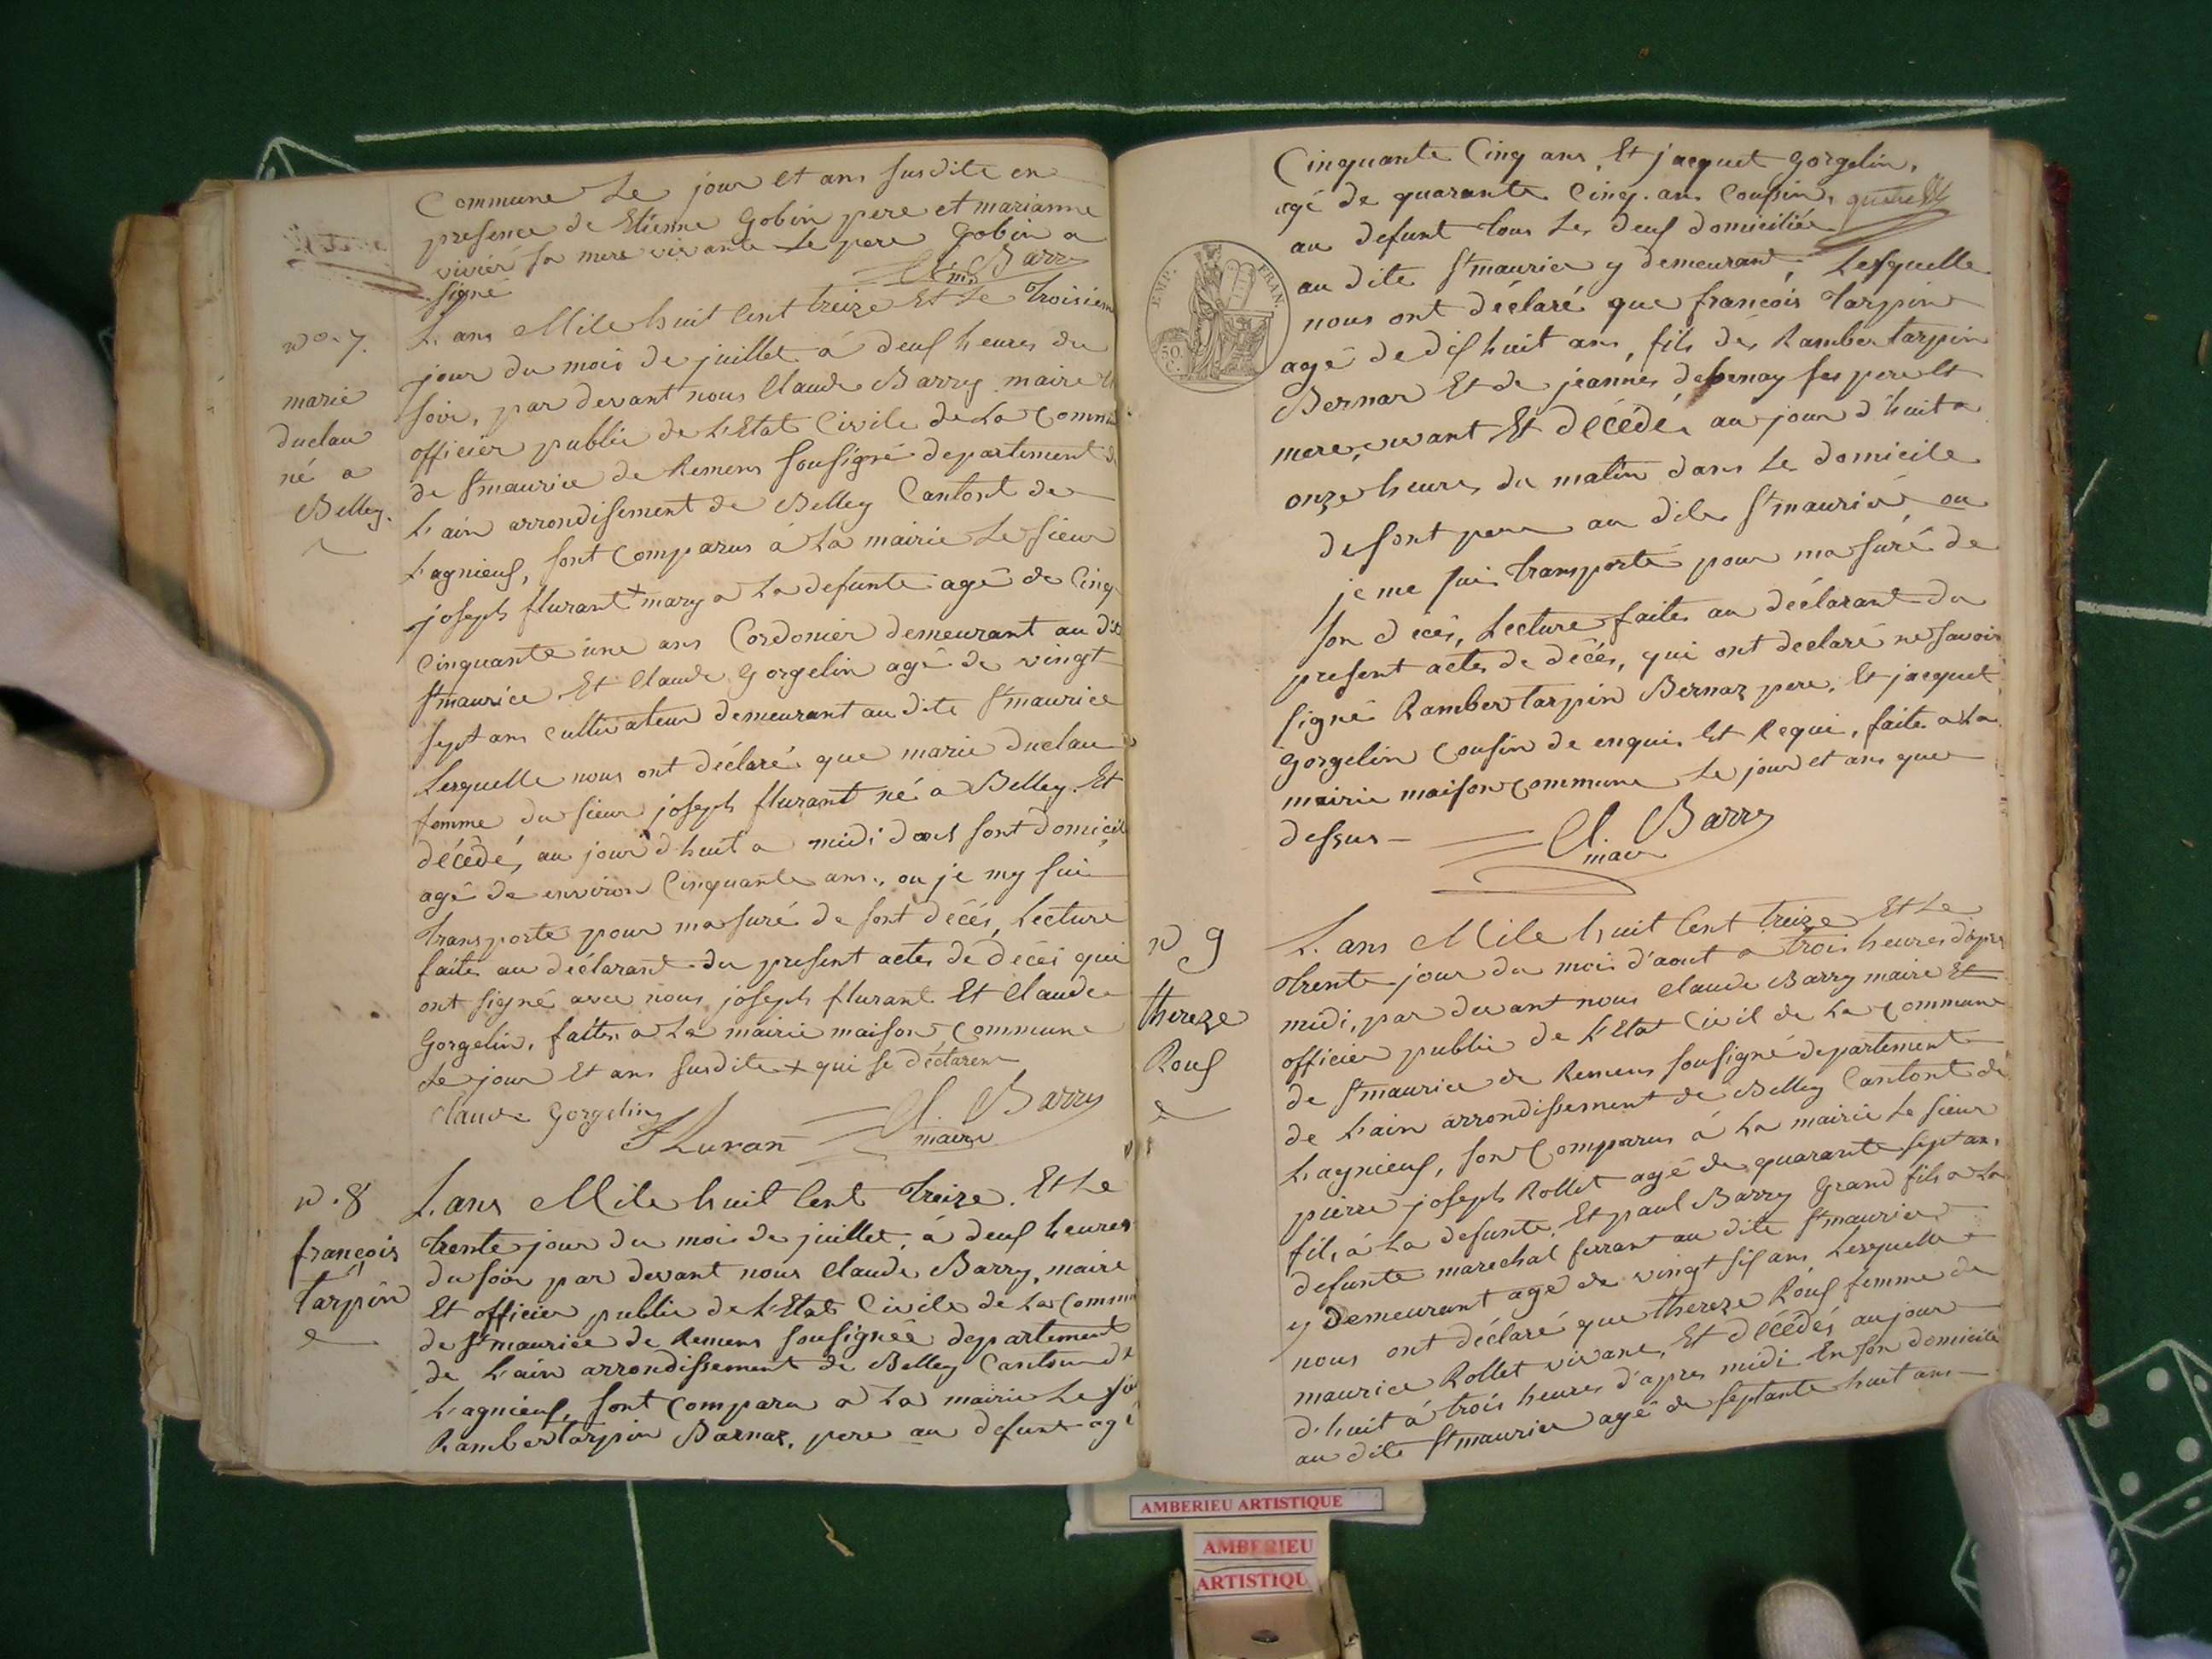 Commune Le jour et ans susdite en
presence de Etienne Gobin pere et marianne
vivier sa mere vivante Le pere Gobin a
signé
Cl. Barry
N° 7.
marie
duclau
né a
Belley.
L'ans Mile huit Cent treize Et Le troisiem
jour du mois de juillet á deuf heures du
soir, par devant nous Claude Barry maire Et
officier public de L'Etat Civile de La Commu
de St maurice de Remens sousigné departement de
L'ain arrondisement de Belley Cantont de
Lagnieuf, sont Comparus á La mairie Le sieur
joseph flurant + mary a La defunte agé de Cinq
Cinquante une ans Cordonier demeurant au dit
St maurice. Et Claude Gorgelin agé de vingt
sept ans cultivateur demeurant au dite St maurice
Lesquelle nous ont déclaré que marie duclau
femme du sieur joseph flurant né a Belley. Et
décédé, au jour d'huit a midi dans sont domicil
agé de environ Cinquante ans, ou je my sui
transporte pour masuré de sont décés, Lecture
faite au déclarant du present actes de décés qui
ont signé avec nous joseph flurant Et Claude
Gorgelin, faites a La mairie maison Commune
Le jour Et ans susdite + qui se déclarent
Claude Gorgelin
Fluran
Cl. Barry
maire
N. 8
françois
Tarpin
L'ans Mile huit Cent Treize. Et Le
trente jour du moi de juillet, á deuf heures
du soir par devant nous Claude Barry, maire
Et officier public de L'Etat Civile de La Commu
de St maurice de Remens sousignéé departement
de L'ain arrondissement de Belley Canton de
Lagnieuf, sont Comparu a La mairie Le sieu
Rambertarpin Barnaz, pere au defunt agé
EMP. FRAN.
50.
C.
Cinquante Cinq ans, Et jacquet Gorgelin,
agé de quarante Cinq. ans Coussin,
au defunt tous Les deuf domiciliée
au dite St maurice y demeurant, Lesquelle
nous ont déclaré que françois Tarpin
agé de dif huit ans, fils de Rambertarpin
Bernar Et de jeanne defenay ses pere Et
mere, vivant Et décédé, au jour d'huit a
onze heures du matin dans Le domicile
de sont pere au dite St maurice, ou
je me sui transporté pour masuré de
son décés, Lecture faites au déclarant du
present actes de décés, qui ont declaré ne savoir
signé Rambertarpin Bernaz pere, Et jacquet
Gorgelin Cousin de enquis Et Requi, faite a La
mairie maison Commune Le jour et ans que
dessus
Cl. Barry
maire
N 9
thereze
Rouf
L'ans Mile huit Cent treize Et Le
Trente jour du mois d'aout a trois heures d'apres
midi, par devant nous Claude Barry maire Et
officier public de L'Etat Civil de La Commune
de St maurice de Remens sousigné departement
de L'ain arrondissement de Belley Cantont de
Lagnieuf, son Comparus á La mairie Le sieur
pierre joseph Rollet agé de quarante sept ans,
fils á La defunte, Et paul Barry Grand fils a La
defunte marechal ferrant au dite St maurice
y demeurant agé de vingt sif ans, Lesquelle
nous ont déclaré que thereze Rouf femme de
maurice Rollet vivant, Et décédés aujour
d'huit á trois heures d'apres midi En son domicile
au dite St maurice agé de septante huit ans
AMBERIEU ARTISTIQUE
AMBERIEU
ARTISTIQU